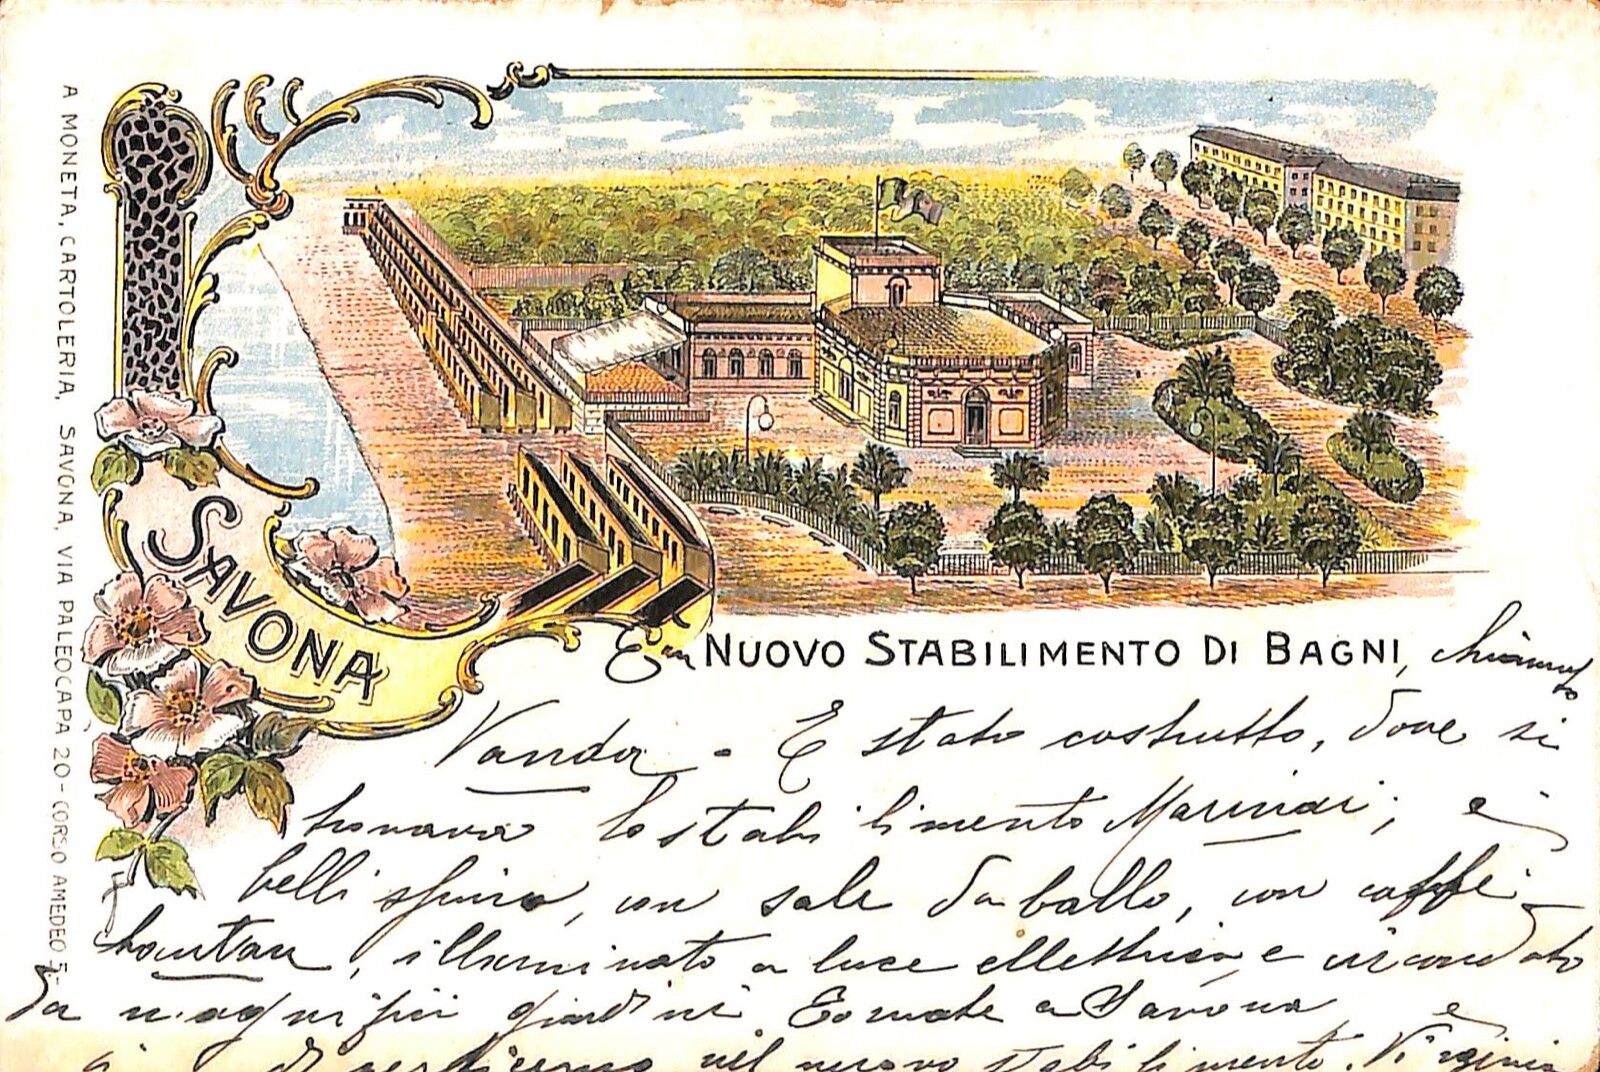 A MONETA, CARTOLERIA, SAVONA, VIA PALEOCAPA 20 - CORSO AMEDEO 5-
SAVONA
NUOVO STABILIMENTO DI BAGNI,
Vanda - E stato costrutto, dove si
trovava lo stabilimento Marinai; è
bellissimo, con sale da ballo, con caffè
chantan, illuminato a luce elettrica e circondato
da magnifici giardini. Tornate a Savona e
nel nuovo stabilimento. Virginia